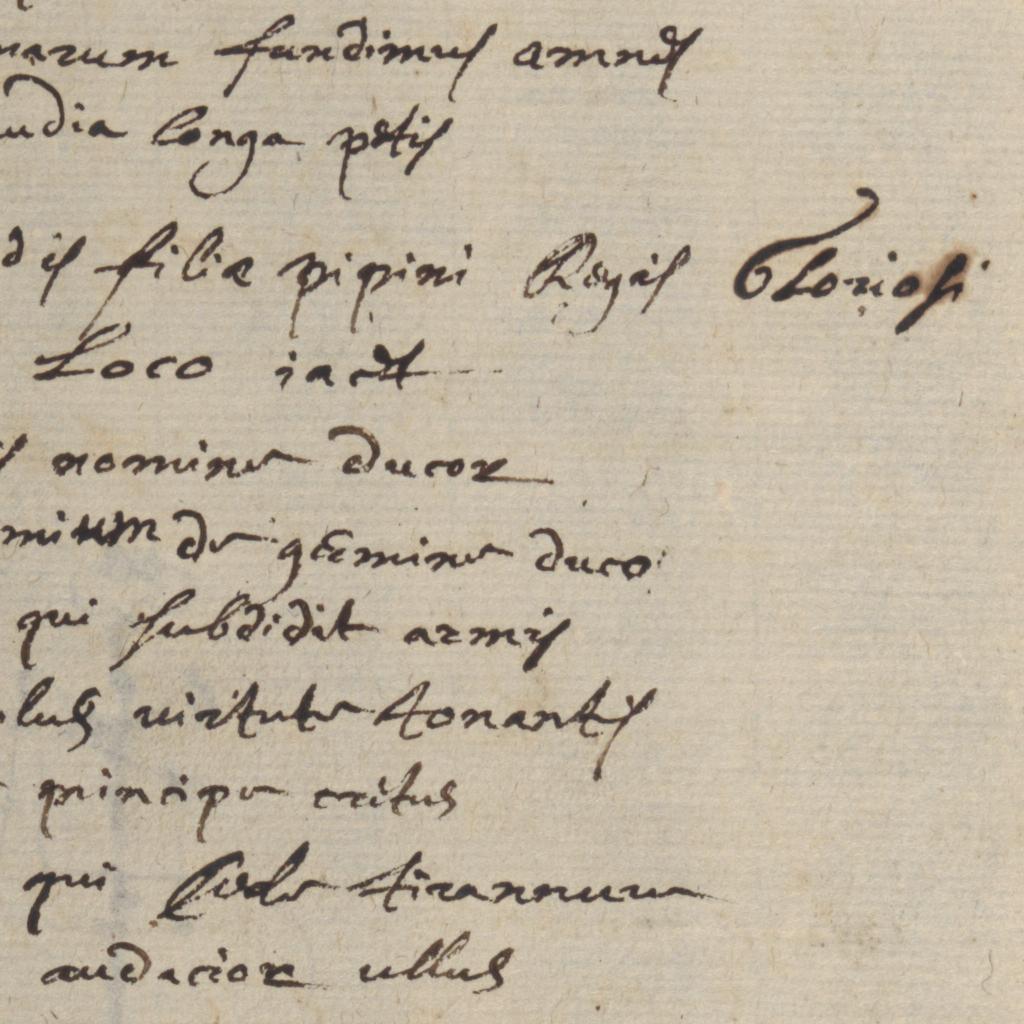 narum fundimus amnes
udia longa petis
dis filiæ pipini Regis Gloriosi
Loco iacet
nomine ducor
mium de germine duco
qui subdidit armis
lus virtute tonantis
principe critus
qui sede tirannum
audacior ullus